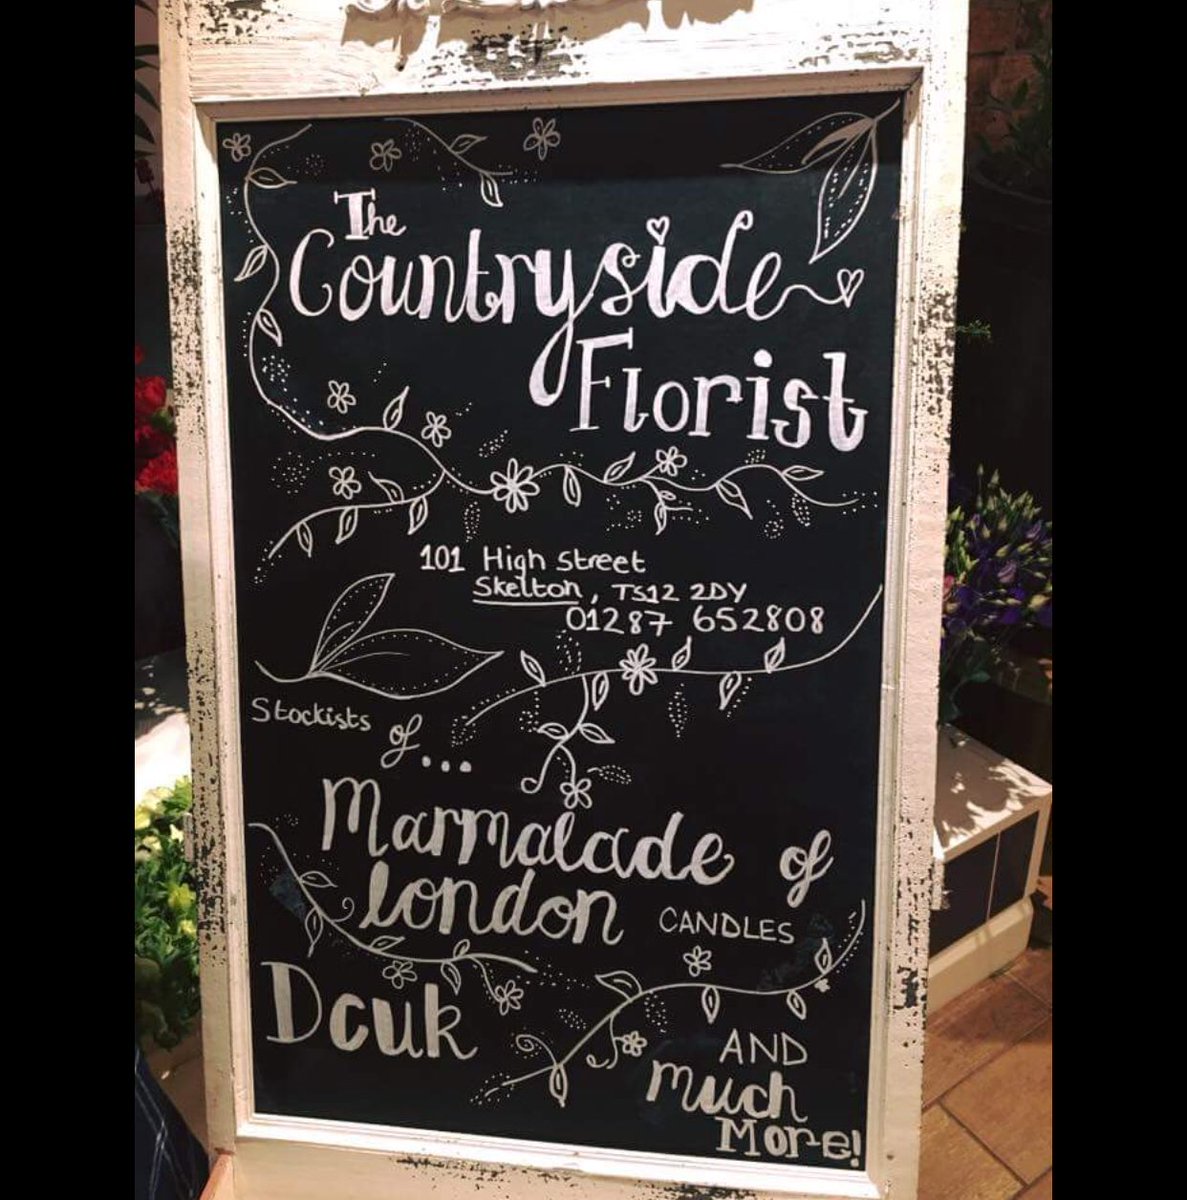 The
Countryside
Florist
101 High Street
Skelton, TS12 2DY
01287 652808
Stockists
of...
Marmalade of
london CANDLES
Dcuk
AND
much
More!